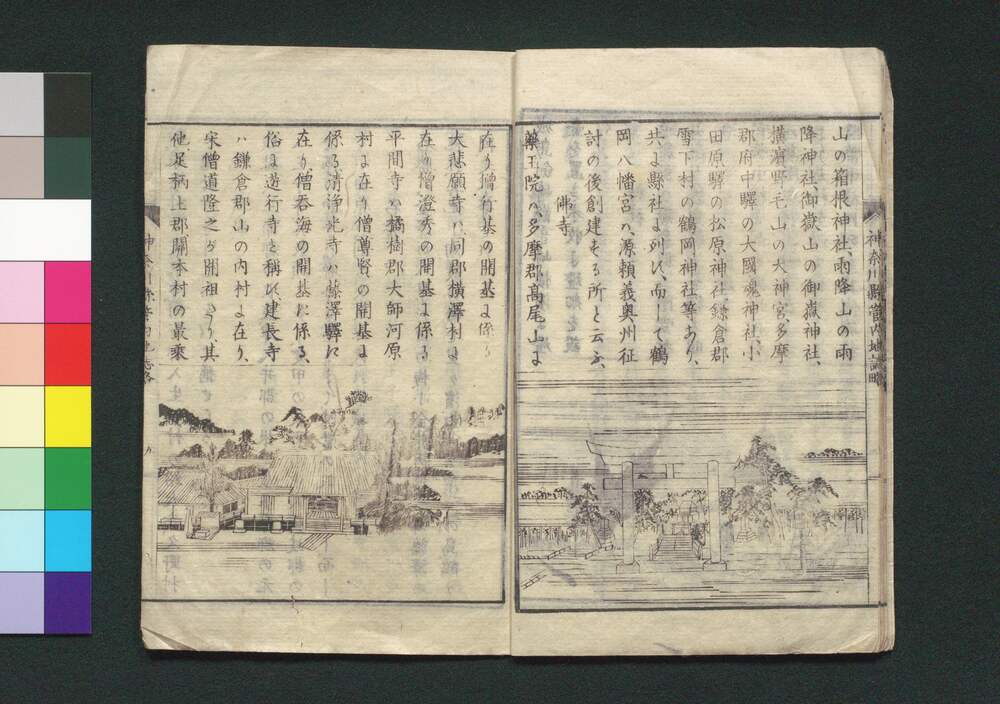 山の箱根神社、雨降山の雨
降神社、御嶽山の御嶽神社、
横濵野毛山の大神宮、多摩
郡府中驛の大國魂神社、小
田原驛の松原神社、鎌倉郡
雪下村の鶴岡神社等あり、
共よ縣社よ列ス、而して鶴
岡八幡宮ハ、源頼義奥州征
討の後創建せる所と云ふ、
佛寺
藥王院ハ、多摩郡髙尾山よ
在り僧行基の開基よ係る
大悲願寺ハ同郡横澤村よ
在り僧澄秀の開基よ係る
平間寺ハ橘樹郡大師河原
村よ在り僧尊賢の開基よ
係る清浄光寺ハ藤澤驛に
在り僧呑海の開基に係る、
俗よ遊行寺と稱ス建長寺
ハ鎌倉郡山の内村よ在り、
宋僧道隆之が開祖たり其
他足柄上郡關本村の最乗
神奈川縣管内地誌略